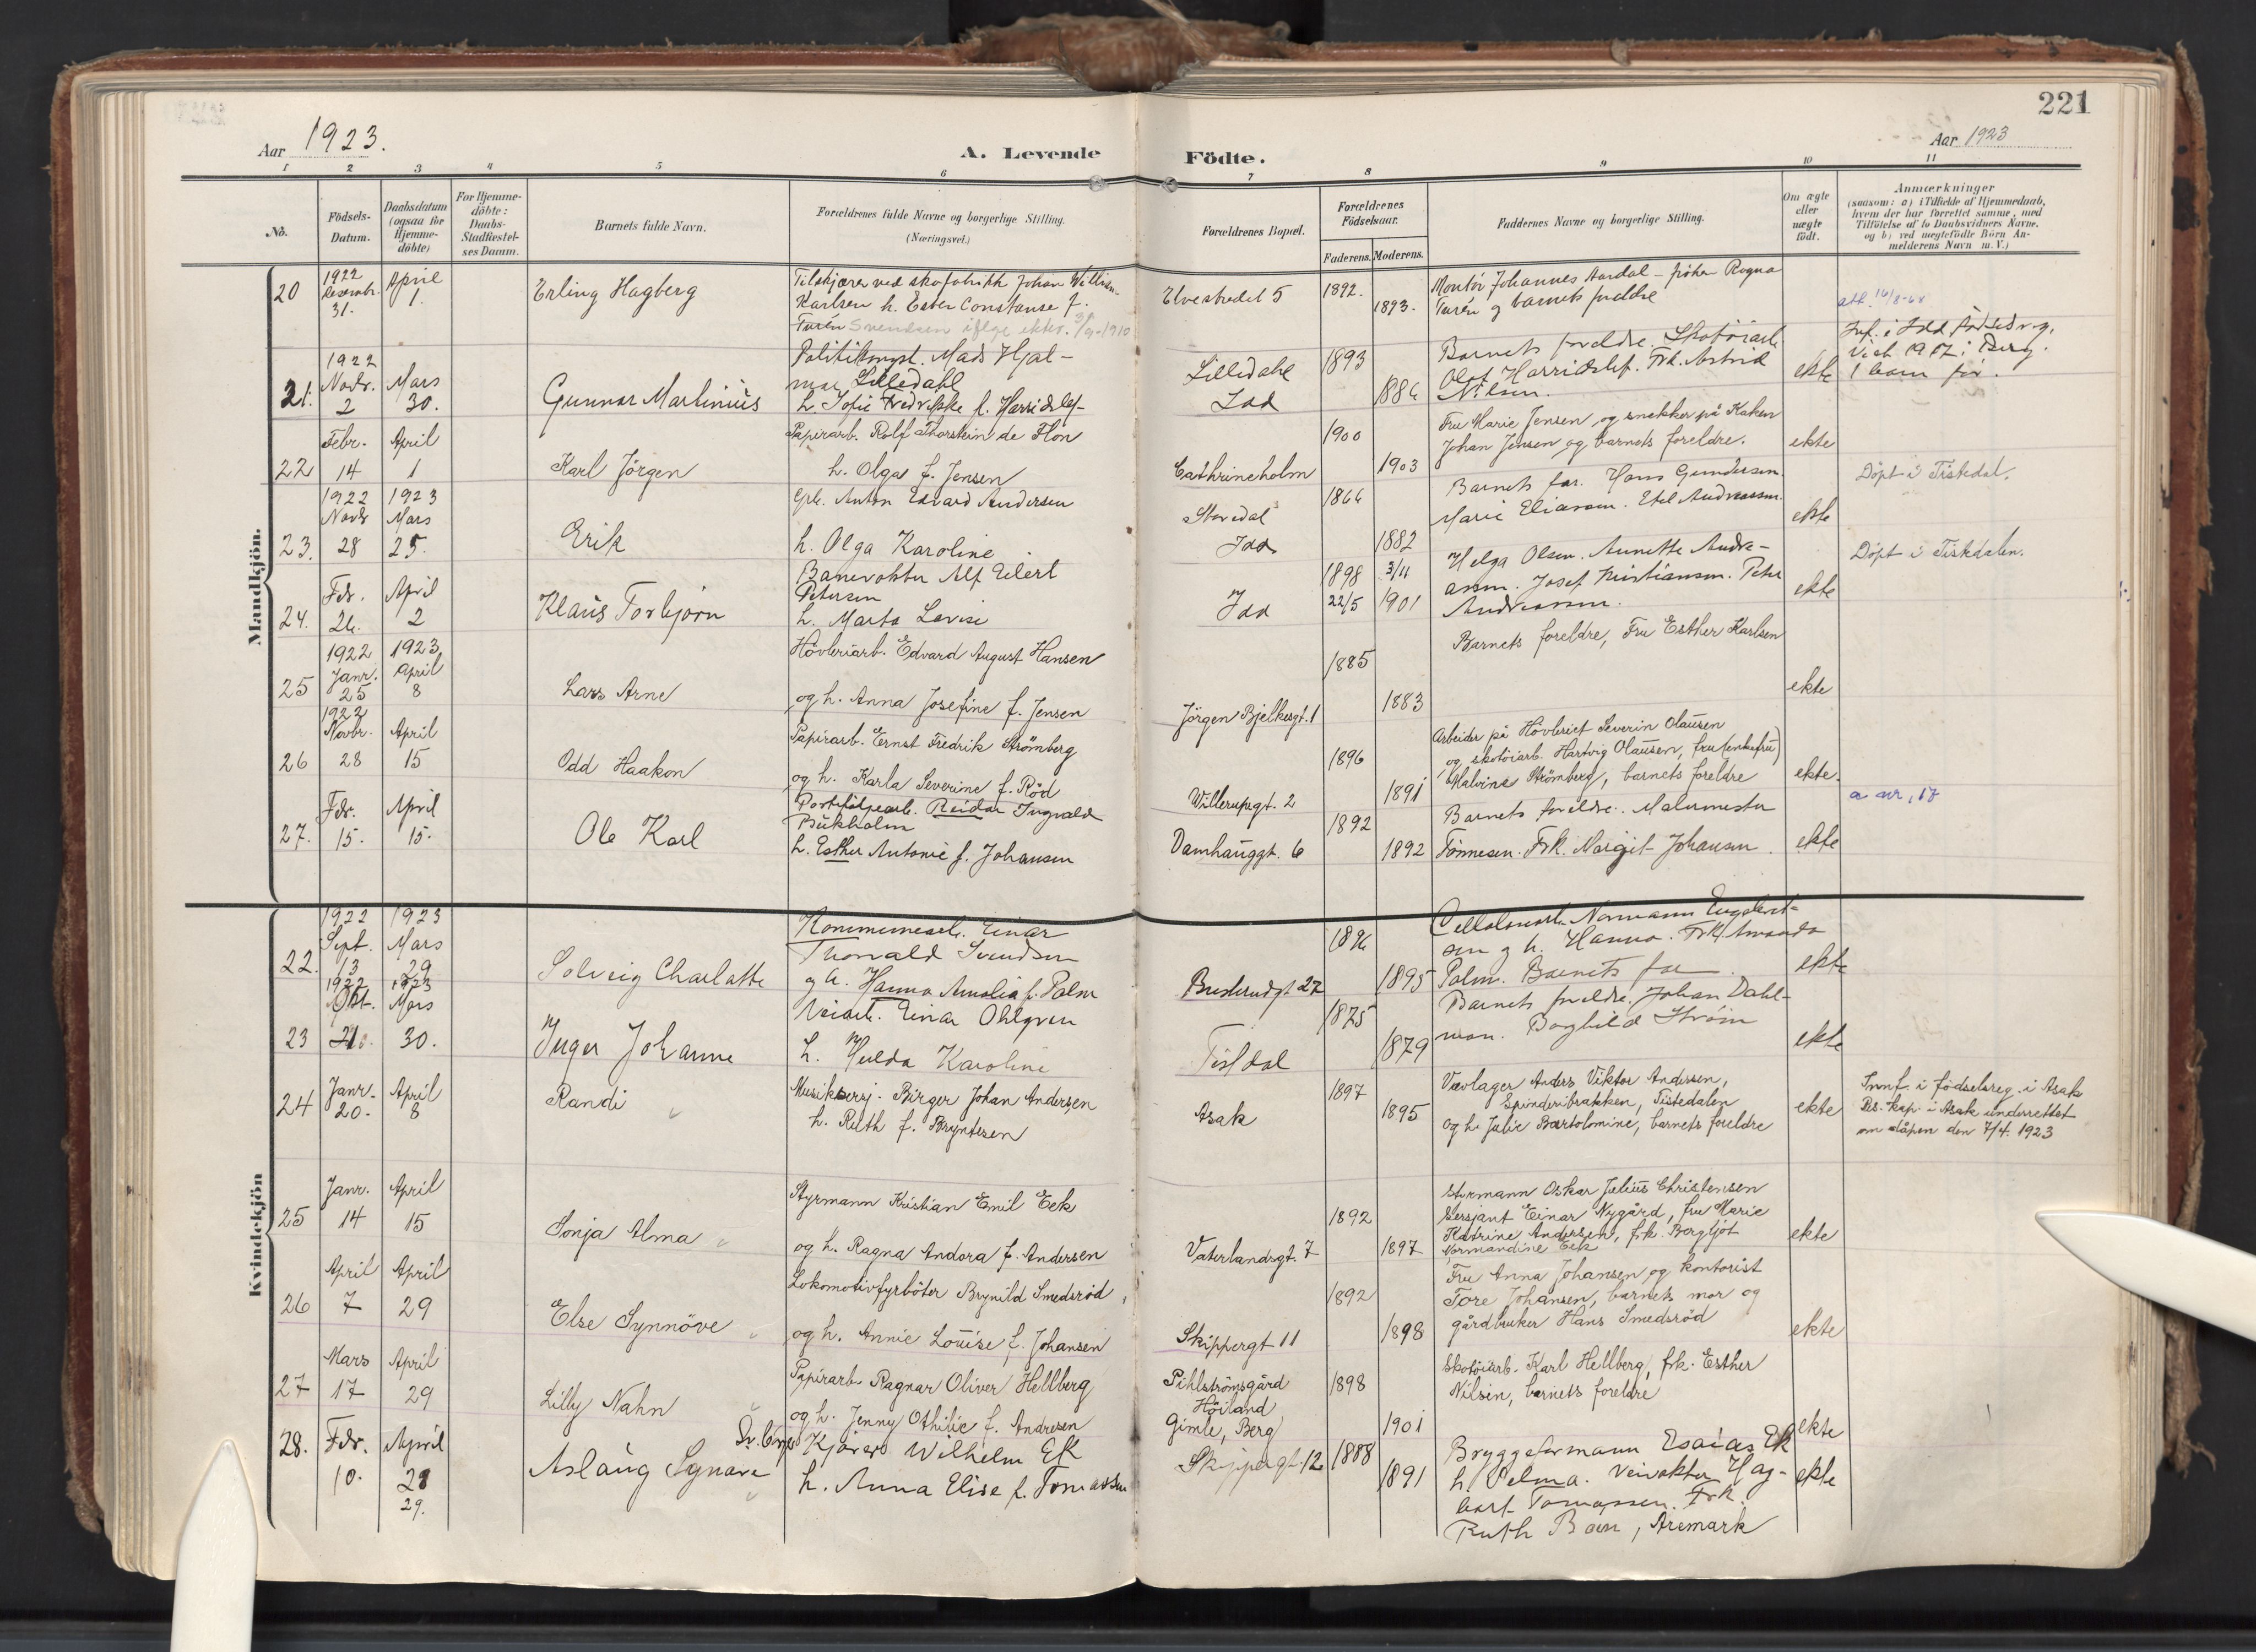 221
Aar 1923.
A. Levende
Födte.
Aar 1923
1 2 3 4 5 6 7 8 9 10 11
No.
Födsels-Datum.
Daabsdatum (ogsaa for Hjemme-döbte)
For Hjemme-döbte: Daabs-Stadfæstel-ses Datum.
Barnets fulde Navn.
Forældrenes fulde Navne og borgerlige Stilling.
(Næringsvei.)
Forældrenes Bopæl.
Forældrenes Födselsaar.
Faderens. Moderens.
Faddernes Navne og borgerlige Stilling.
Om ægte eller uægte födt.
Anmærkninger
(saasom: a) i Tilfælde af Hjemmedaab,
hvem der har forrettet samme, med
Tilföielse af to Daabsvidners Navne.
og b) ved uægtefödte Börn An-
melderens Navn m. V.)
Mandkjön.
20 1922 Desembr. 31. April 1. Erling Hagberg
Tilskjærer ved skofabrikk Johan Willian
Karlsen h. Ester Constanse f.
Turén Svendsen ifølge ekter. 3/9-1910
Elvestredet 5 1892. 1893.
Montør Johannes Aardal - frøken Ragna
Turén og barnets foreldre
21. 1922 Novbr. 2 Mars 30. Gunnar Martinius
Politikonst. Mads Hjal-
mar Lilledahl
h. Sofie Fredrikke f. Harridslef-
Lilledahl Idd 1893 1886
Barnets foreldre. Skotöiarb.
Olaf Harridslef. Frk. Astrid
Nilsen.
ekte
Inf. i Idd fødselsreg.
Viet 1917 i Berg.
1 barn før.
22 Febr. 14 April 1 Karl Jörgen
Papirarb. Rolf Thorstein de Flon
h. Olga f. Jensen
Cathrineholm 1900 1903
Fru Marie Jensen og snekker på Kaken
Johan Jensen og barnets foreldre.
ekte
Döpt i Tistedal.
23. 1922 Novbr 28 1923 Mars 25. Erik
Grb. Anton Edvard Andersen
h. Olga Karoline
Stordal Idd 1866 1882
Barnets far. Hans Gundersen.
Marie Eliassen. Etel Andreassen.
ekte
Döpt i Tistedalen.
24. Febr. 26. April 2 Klaus Torbjörn
Banevokter Alf Eilert
Petersen
h. Marta Lovise
Idd 1898 22/5 3/11 1901
Helga Olsen. Annette Andre-
assen. Josef Kristiansen. Peter
Andreassen.
ekte
25 1922 Janr. 25 1923 April 8 Lars Arne
Hövleriarb. Edvard August Hansen
og h. Anna Josefine f. Jensen
Jörgen Bjelkesgt. 1 1885 1883
Barnets foreldre, Fru Esther Karlsen
ekte
26 1922 Novbr. 28 April 15 Odd Haakon
Papirarb. Ernst Fredrik Strömberg
og h. Karla Severine f. Röd
Willerupgt. 2 1896 1891
Arbeider på Hövleriet Severin Olausen
og skotöiarb. Hartvig Olausen, fru (enkefru)
Malvine Strömberg, barnets foreldre
ekte.
27. Febr. 15. April 15. Ole Karl
Porteföljearb. Reidar Ingvald
Bükholm
h. Esther Antonie f. Johansen
Damhauggt. 6 1892 1892
Barnets foreldre. Malermester
Tönnesen. Frk. Margit Johansen.
ekte
Kvindekjön
22. 1922 Sept. 13 1923 Mars 29 Solveig Charlotte
Kommunearb. Einar
Thorvald Svendsen
og h. Hanna Amalia f. Palm
Buskrudgt 27 1896 1895
Cellolosearb. Normann Engebret-
sen og h. Hanna. Frk. Amanda
Palm. Barnets far.
ekte
23 1922 Okt. 1923 Mars 30. Inger Johanne
Veiarb. Einar Ohlgren
h. Hulda Karoline
Tistdal 1875 1879
Barnets foreldre. Johan Dahl-
man. Borghild Ström
ekte
24 Janr. 20. April 8 Randi
Musikkersj. Birger Johan Andersen
h. Ruth f. Bryntesen
Asak 1897 1895
Vævlager Anders Viktor Andersen,
Spinderibrakken, Tistedalen
og h. Julie Bartolomine, barnets foreldre
ekte
Innf. i fødselsreg. i Asak
Res. kap. i Asak underrettet
om dåpen den 7/4. 1923
25 Janr. 14 April 15 Sonja Alma
Styrmann Kristian Emil Eek
og h. Ragna Andora f. Andersen
Vaterlandsgt. 7 1892 1897
Styrmann Oskar Julius Christensen
Sersjant Einar Nygård, fru Marie
Katrine Andersen, frk. Bergljot
Normandine Eek
ekte
26 April 7 April 29 Else Synnöve
Lokomotivfyrböter Brynild Smedsröd
og h. Annie Louise f. Johansen
Skippergt 11 1892 1898
Fru Anna Johansen og kontorist
Tore Johansen, barnets mor og
gårdbruker Hans Smedsröd
ekte
27 Mars 17 April 29 Lilly Nahn
Papirarb. Ragnar Oliver Hellberg
og h. Jenny Othilie f. Andersen
Pihlströmsgård
Höiland
Gimle, Berg
1898 1901
Skotöiarb. Karl Hellberg, frk. Esther
Nilsen, barnets foreldre
ekte
28. Febr. 10. April 29. Aslaug Synøve
Kjörer Wilhelm Ek
h. Anna Elise f. Tomassen
Skippergt. 12 1888 1891
Bryggeformann Esaias Ek
h. Selma. Veivokter Hag-
bart Tomassen. Frk.
Ruth Baar, Aremark
ekte